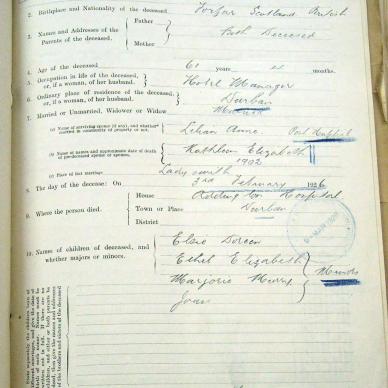 2. Birthplace and Nationality of the deceased Forfar Scotland British
3. Names and Addresses of the Parents of the deceased.
Father
Both Deceased
Mother
4. Age of the deceased 61 years months.
5. Occupation in life of the deceased, or, if a woman, of her husband. Hotel Manager
6. Ordinary place of residence of the deceased, or, if a woman, of her husband. Durban
7. Married or Unmarried, Widower or Widow Married
(a) Name of surviving spouse (if any), and whether married in community of property or not. Lilian Anne.
(b) Name or names and approximate date of death of pre-deceased spouse or spouses. Kathleen Elizabeth
1902
(c) Place of last marriage Ladysmith
8. The day of the decease: On 3rd February 1926
9. Where the person died.
House Addington Hospital
Town or Place Durban
District
10. Names of children of deceased, and whether majors or minors.
Elsie Doreen
Ethel Elizabeth
Marjorie
Joan
Minors